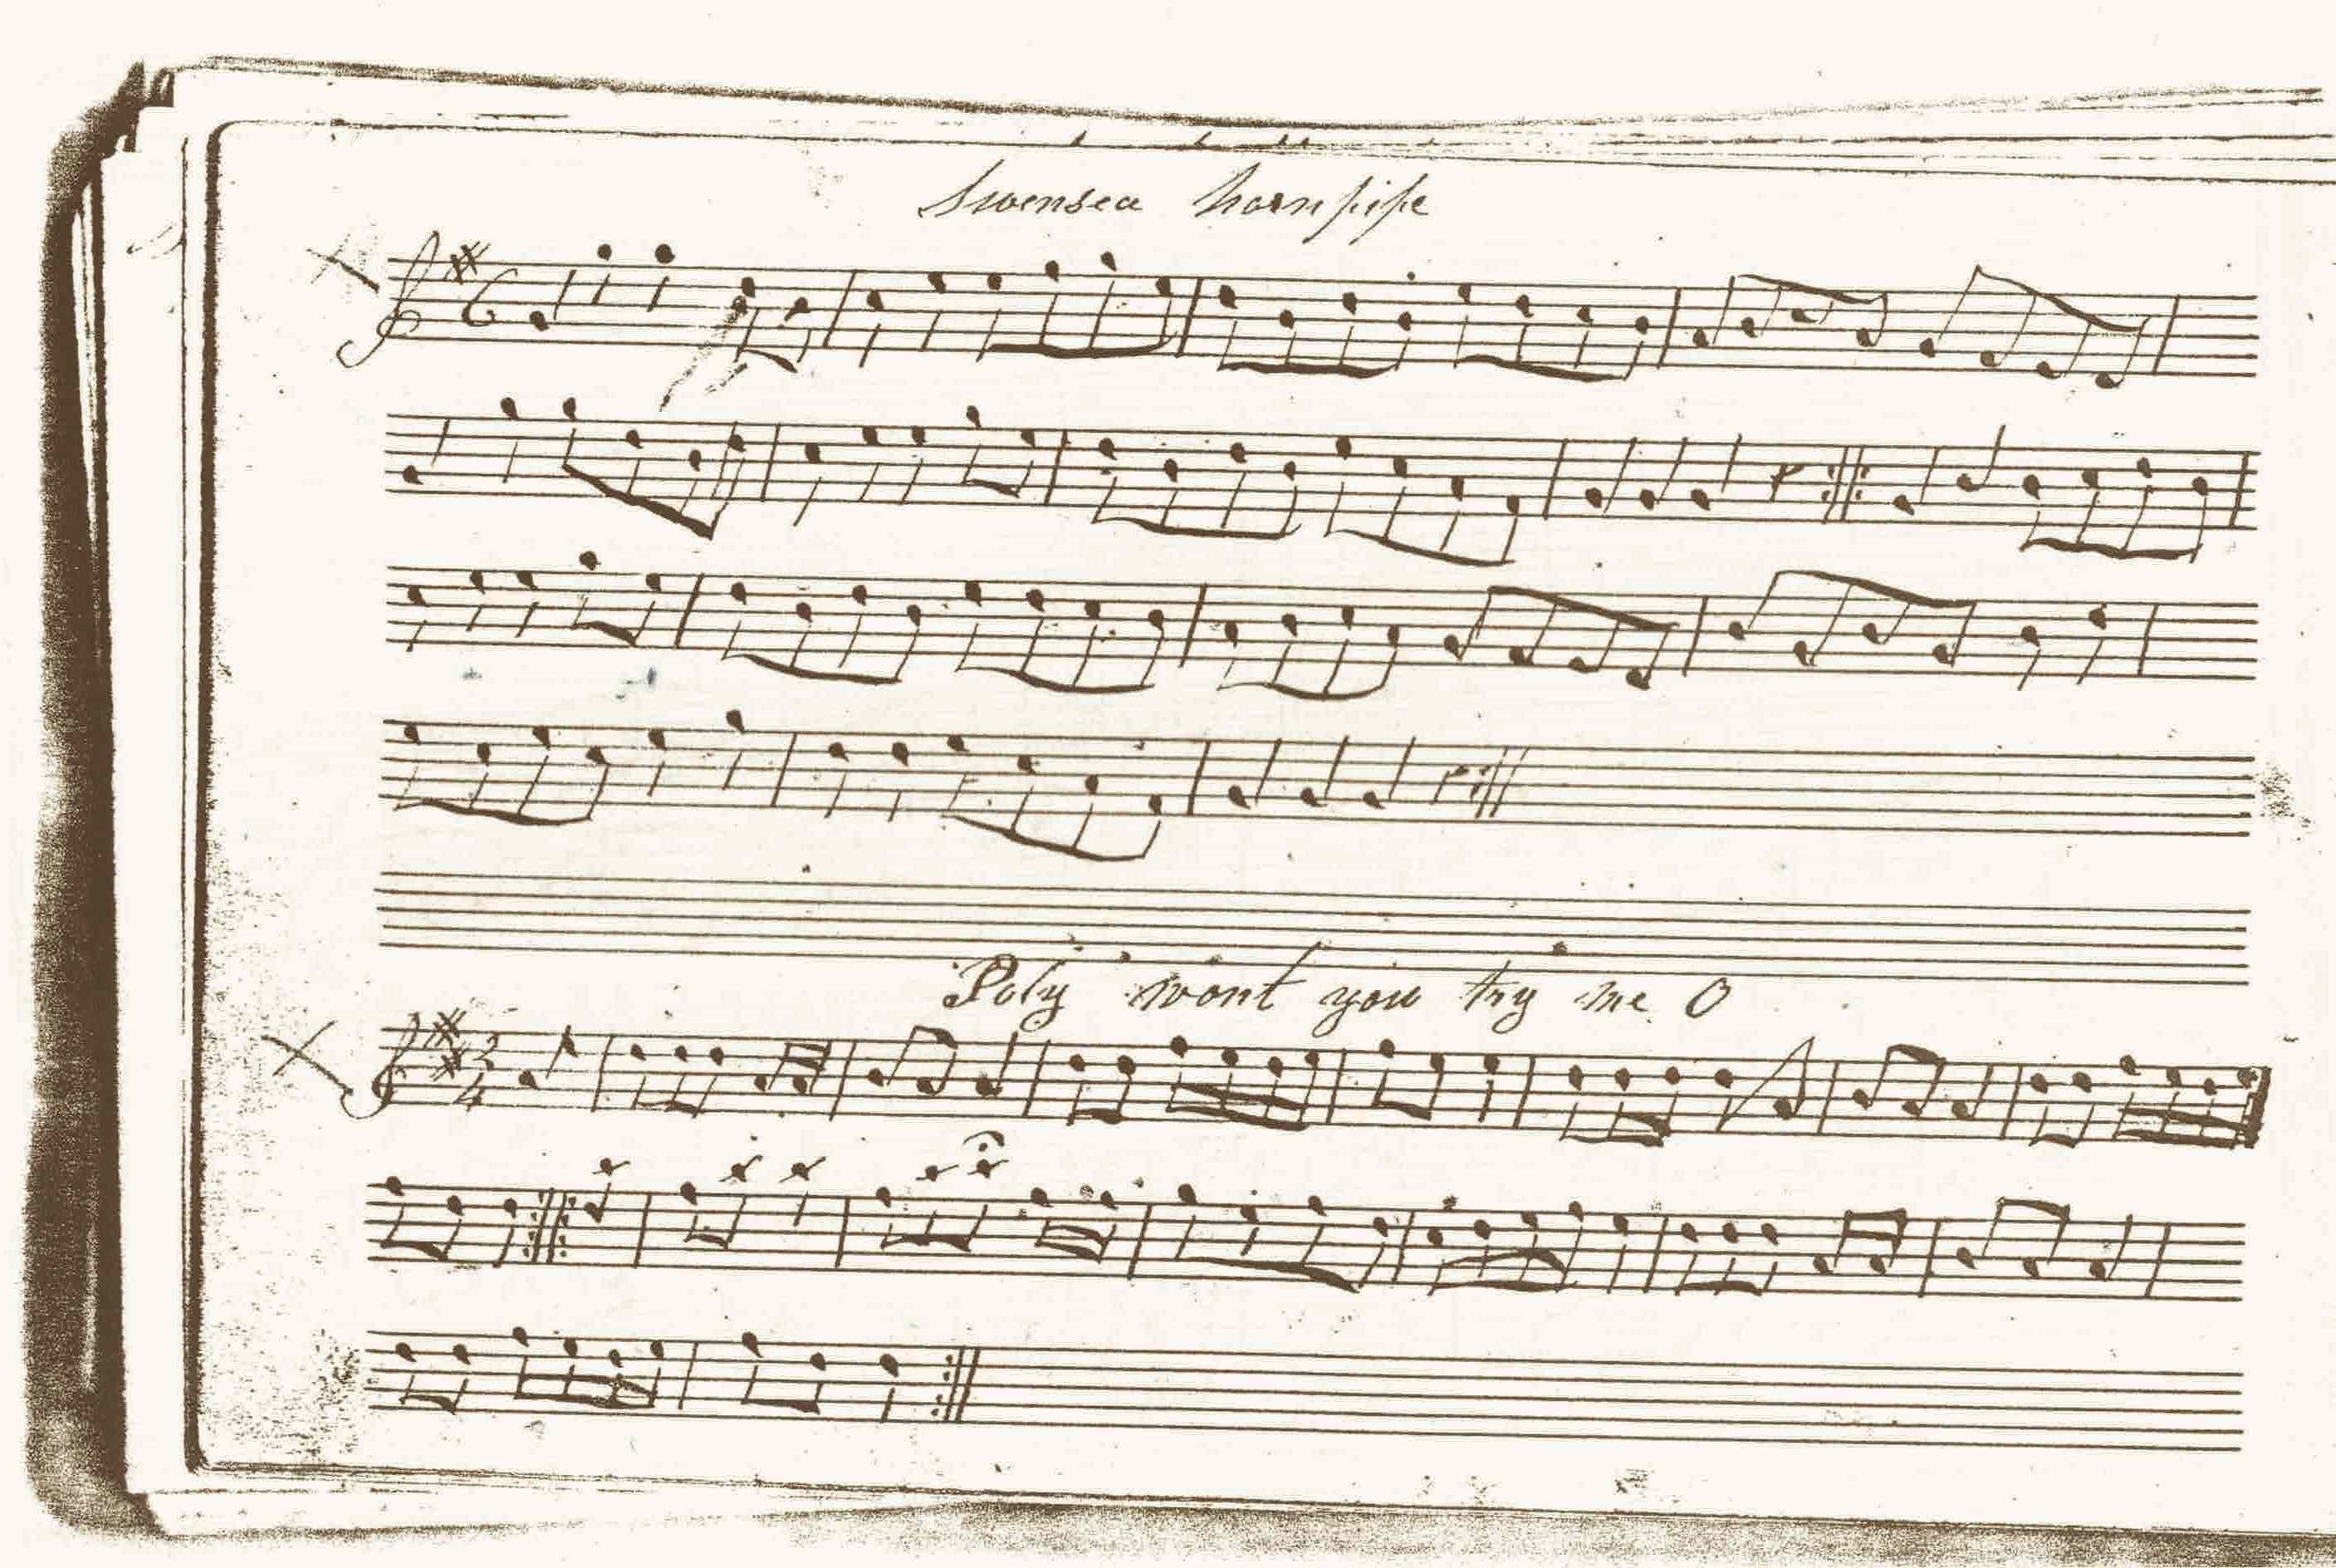 Swensea hornpipe
Poly wont you try me O